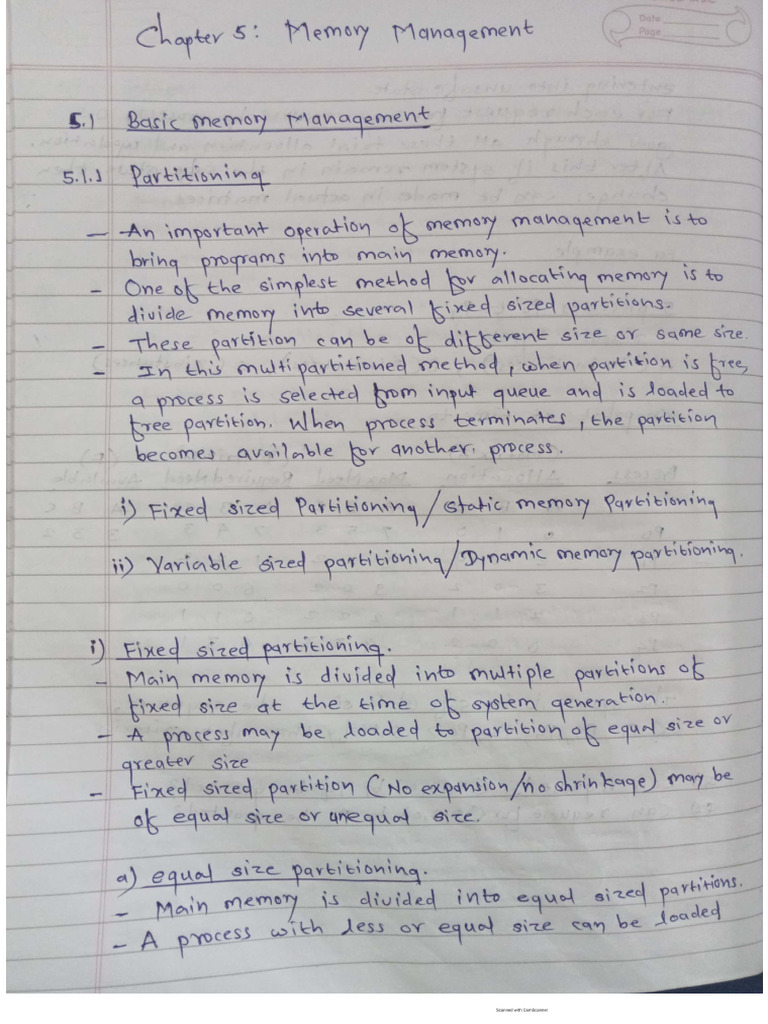 Date
Page
Chapter 5: Memory Management
5.1 Basic memory Management
5.1.1 Partitioning
- An important operation of memory management is to
bring programs into main memory.
- One of the simplest method for allocating memory is to
divide memory into several fixed sized partitions.
- These partition can be of different size or same size.
- In this multipartitioned method, when partition is free,
a process is selected from input queue and is loaded to
free partition. When process terminates, the partition
becomes available for another process.
i) Fixed sized Partitioning/static memory Partitioning
ii) Variable sized partitioning/Dynamic memory partitioning.
i) Fixed sized partitioning.
- Main memory is divided into multiple partitions of
fixed size at the time of system generation.
- A process may be loaded to partition of equal size or
greater size
- Fixed sized partition (No expansion/no shrinkage) may be
of equal size or unequal size.
a) equal size partitioning.
- Main memory is divided into equal sized partitions.
- A process with less or equal size can be loaded
Scanned with CamScanner